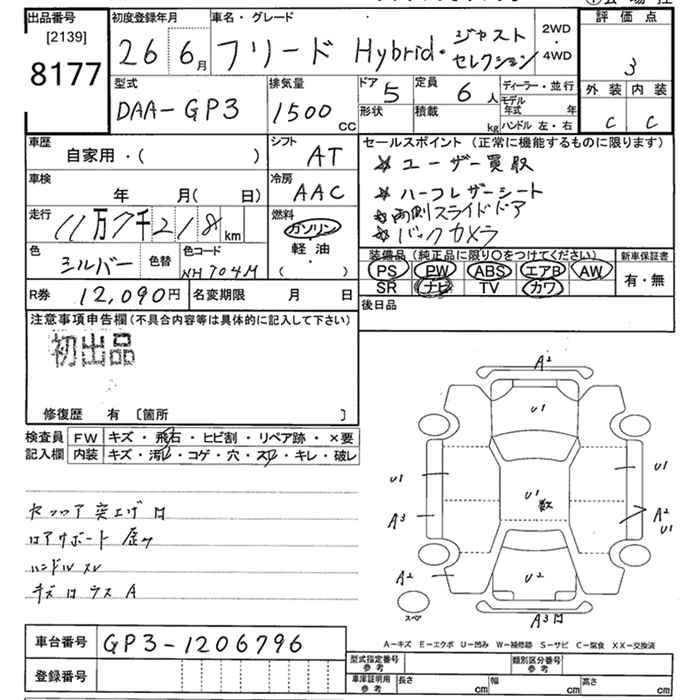 出品番号 初度登録年月 車名・グレード 2WD 評価点
[2139] 26 6月 フリード Hybrid・ジャストセレクション ・4WD 3
8177
型式 排気量 ドア 定員 ディーラー・並行 外装 内装
DAA-GP3 1500cc 5 6人 モデル年式 年 C C
形状 積載 kg ハンドル 左・右
車歴 シフト セールスポイント(正常に機能するものに限ります)
自家用・( ) AT ユーザー買取
車検 冷房
年 月( 日) AAC ハーフレザーシート
走行 燃料 両側スライドドア
11万7千218km ガソリン バックカメラ
色 色替 色コード 軽・油 装備品(純正品に限り○をつけてください) 新車保証書
シルバー NH704M ・( ) PS PW ABS エアB AW 有・無
SR ナビ TV カワ
R券 12,090円 名変期限 月 日 後日品
注意事項申告欄(不具合内容等は具体的に記入して下さい)
初出品
修復歴 有 [箇所 ]
検査員 FW キズ・飛石・ヒビ割・リペア跡・×要
記入欄 内装 キズ・汚れ・コゲ・穴・スレ・キレ・破レ
A2
U1
U1 U1
U1 数
A3 A2 U1
A2 U2
スペア A3
ハンドル スレ
A-キズ E-エクボ U-凹み W-補修跡 S-サビ C-腐食 XX-交換済
車台番号 GP3-1206796
登録番号
型式指定番号 参考 類別区分番号 参考
車庫証明用 参考 長さ cm 幅 cm 高さ cm